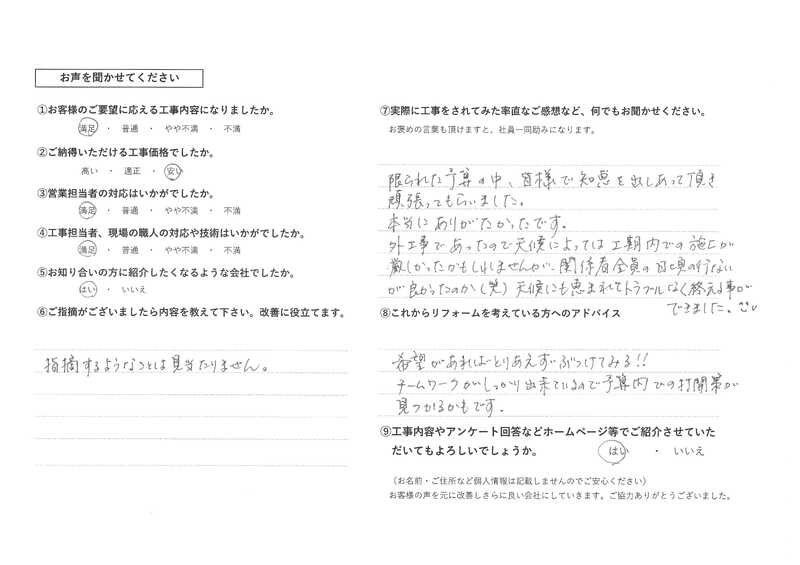 お声を聞かせてください
①お客様のご要望に応える工事内容になりましたか。
満足 ・ 普通 ・ やや不満 ・ 不満
②ご納得いただける工事価格でしたか。
高い ・ 適正 ・ 安い
③営業担当者の対応はいかがでしたか。
満足 ・ 普通 ・ やや不満 ・ 不満
④工事担当者、現場の職人の対応や技術はいかがでしたか。
満足 ・ 普通 ・ やや不満 ・ 不満
⑤お知り合いの方に紹介したくなるような会社でしたか。
はい ・ いいえ
⑥ご指摘がございましたら内容を教えて下さい。改善に役立てます。
指摘するようなことは見当たりません。
⑦実際に工事をされてみた率直なご感想など、何でもお聞かせください。
お褒めの言葉も頂けますと、社員一同励みになります。
限られた予算の中、皆様で知恵を出しあって頂き
頑張ってもらいました。
本当にありがたかったです。
外工事であったので天候によっては工期内での施工が
厳しかったかもしれませんが、関係者全員の日頃の行ない
が良かったのか(笑)天候にも恵まれてトラブルなく終える事が
できました。
⑧これからリフォームを考えている方へのアドバイス
希望があればとりあえずぶつけてみる!!
チームワークがしっかり出来ているので予算内での打開策が
見つかるかもです.
⑨工事内容やアンケート回答などホームページ等でご紹介させていた
だいてもよろしいでしょうか。 はい ・ いいえ
(お名前・ご住所など個人情報は記載しませんのでご安心ください)
お客様の声を元に改善しさらに良い会社にしていきます。ご協力ありがとうございました。